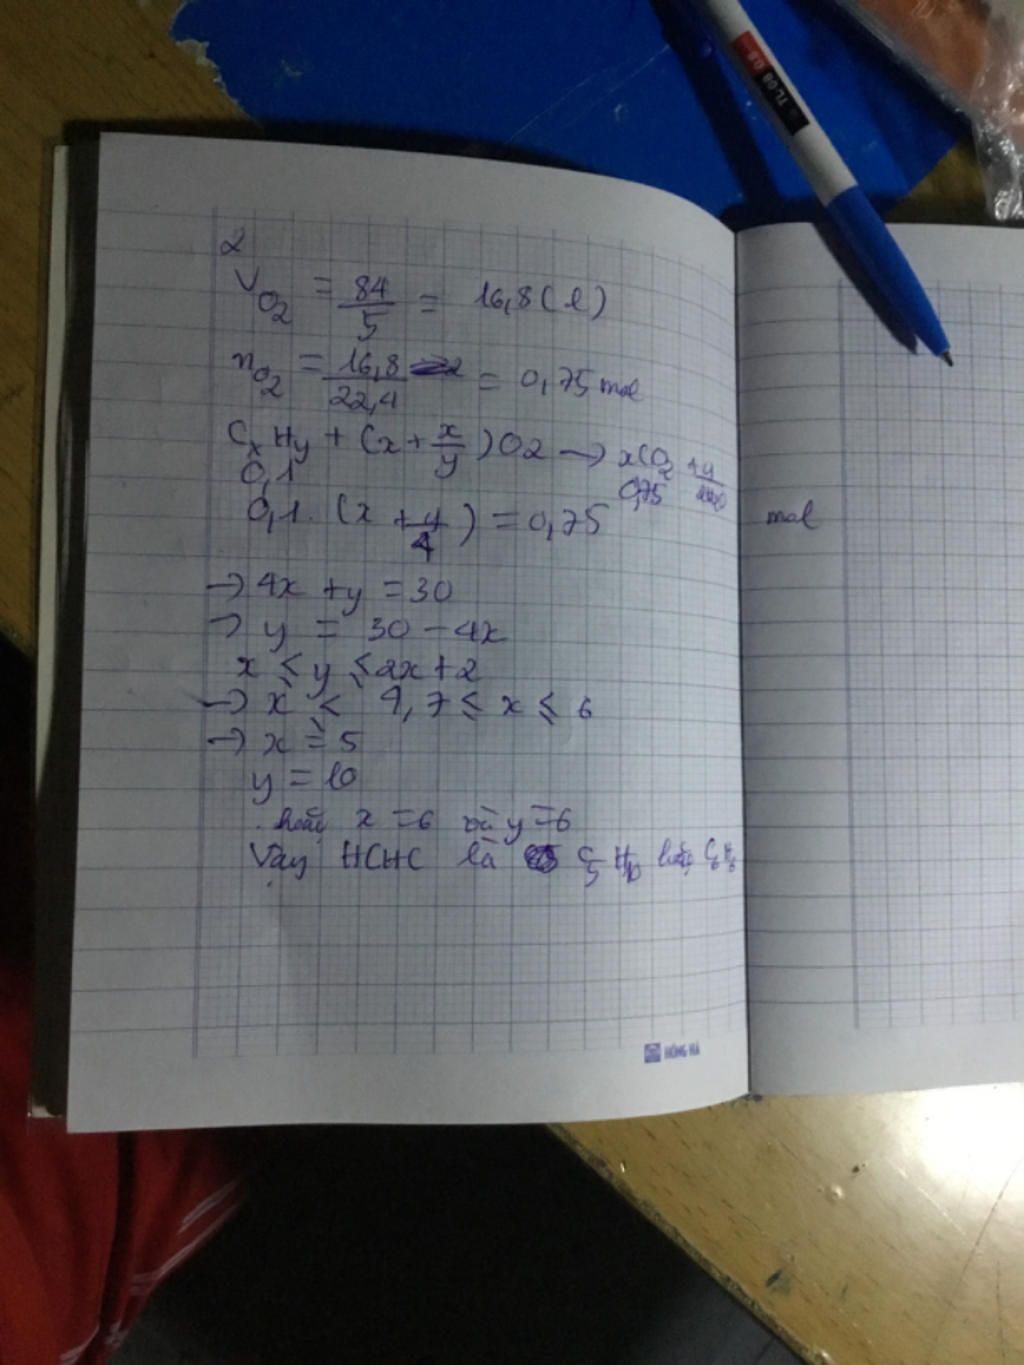 TL 08 0.8
2
V O2 = 84/5 = 16,8 (l)
n O2 = 16,8/22,4 = 0,75 mol
CxHy + (x + x/y) O2 → xCO2 + y/
0,1 0,75 mol
0,1. (x + y/4) = 0,75
→ 4x + y = 30
→ y = 30 - 4x
x ≤ y ≤ 2x + 2
→ x ≤ 4,7 ≤ x ≤ 6
→ x = 5
y = 10
hoặc x = 6 và y = 6
Vậy HCHC là C5H10 hoặc C6H6
HỒNG HÀ